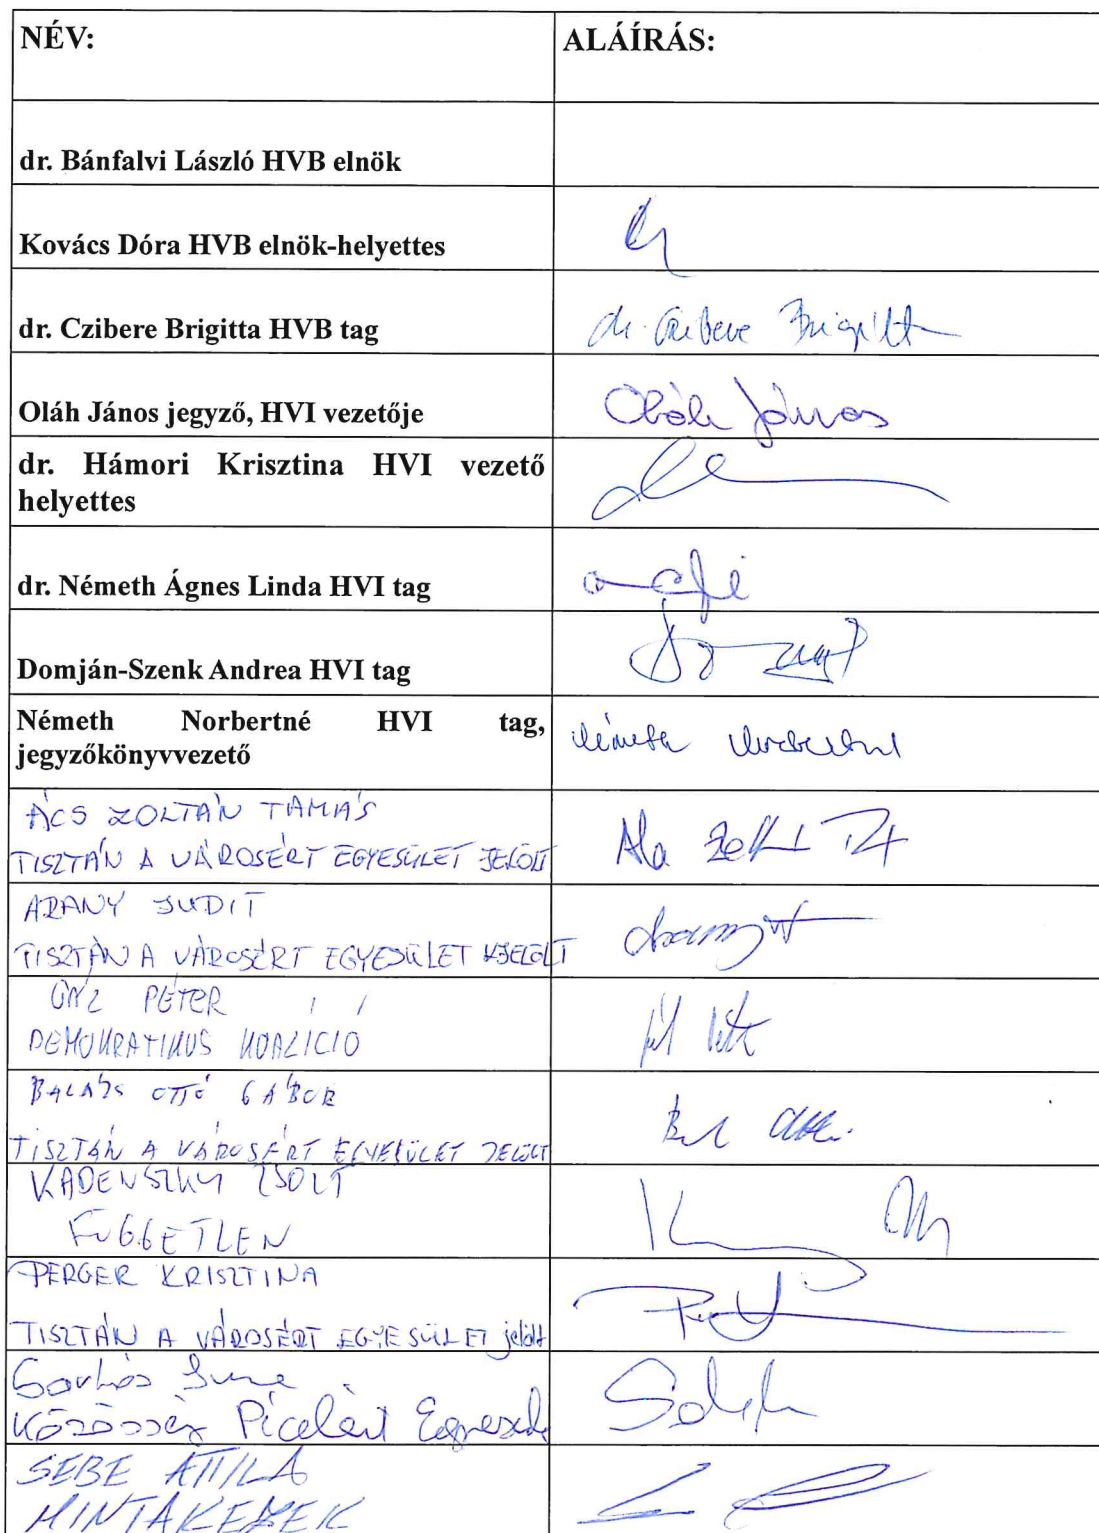 NÉV: ALÁÍRÁS:
dr. Bánfalvi László HVB elnök
Kovács Dóra HVB elnök-helyettes
dr. Czibere Brigitta HVB tag dr. Czibere Brigitta
Oláh János jegyző, HVI vezetője Oláh János
dr. Hámori Krisztina HVI vezető
helyettes
dr. Németh Ágnes Linda HVI tag
Domján-Szenk Andrea HVI tag
Németh Norbertné HVI tag, Németh Norbertné
jegyzőkönyvvezető
ÁCS ZOLTÁN TAMÁS
TISZTÁN A VÁROSÉRT EGYESÜLET JELÖLT
ARANY JUDIT
TISZTÁN A VÁROSÉRT EGYESÜLET
PÉTER
DEMOKRATIKUS KOALÍCIÓ
BALÁZS OTTÓ GÁBOR
TISZTÁN A VÁROSÉRT EGYESÜLET JELÖLT
KADENSZKY ZSOLT
FÜGGETLEN
PERGER KRISZTINA
TISZTÁN A VÁROSÉRT EGYESÜLET jelölt
Közösség Pécelért
SEBE ATTILA